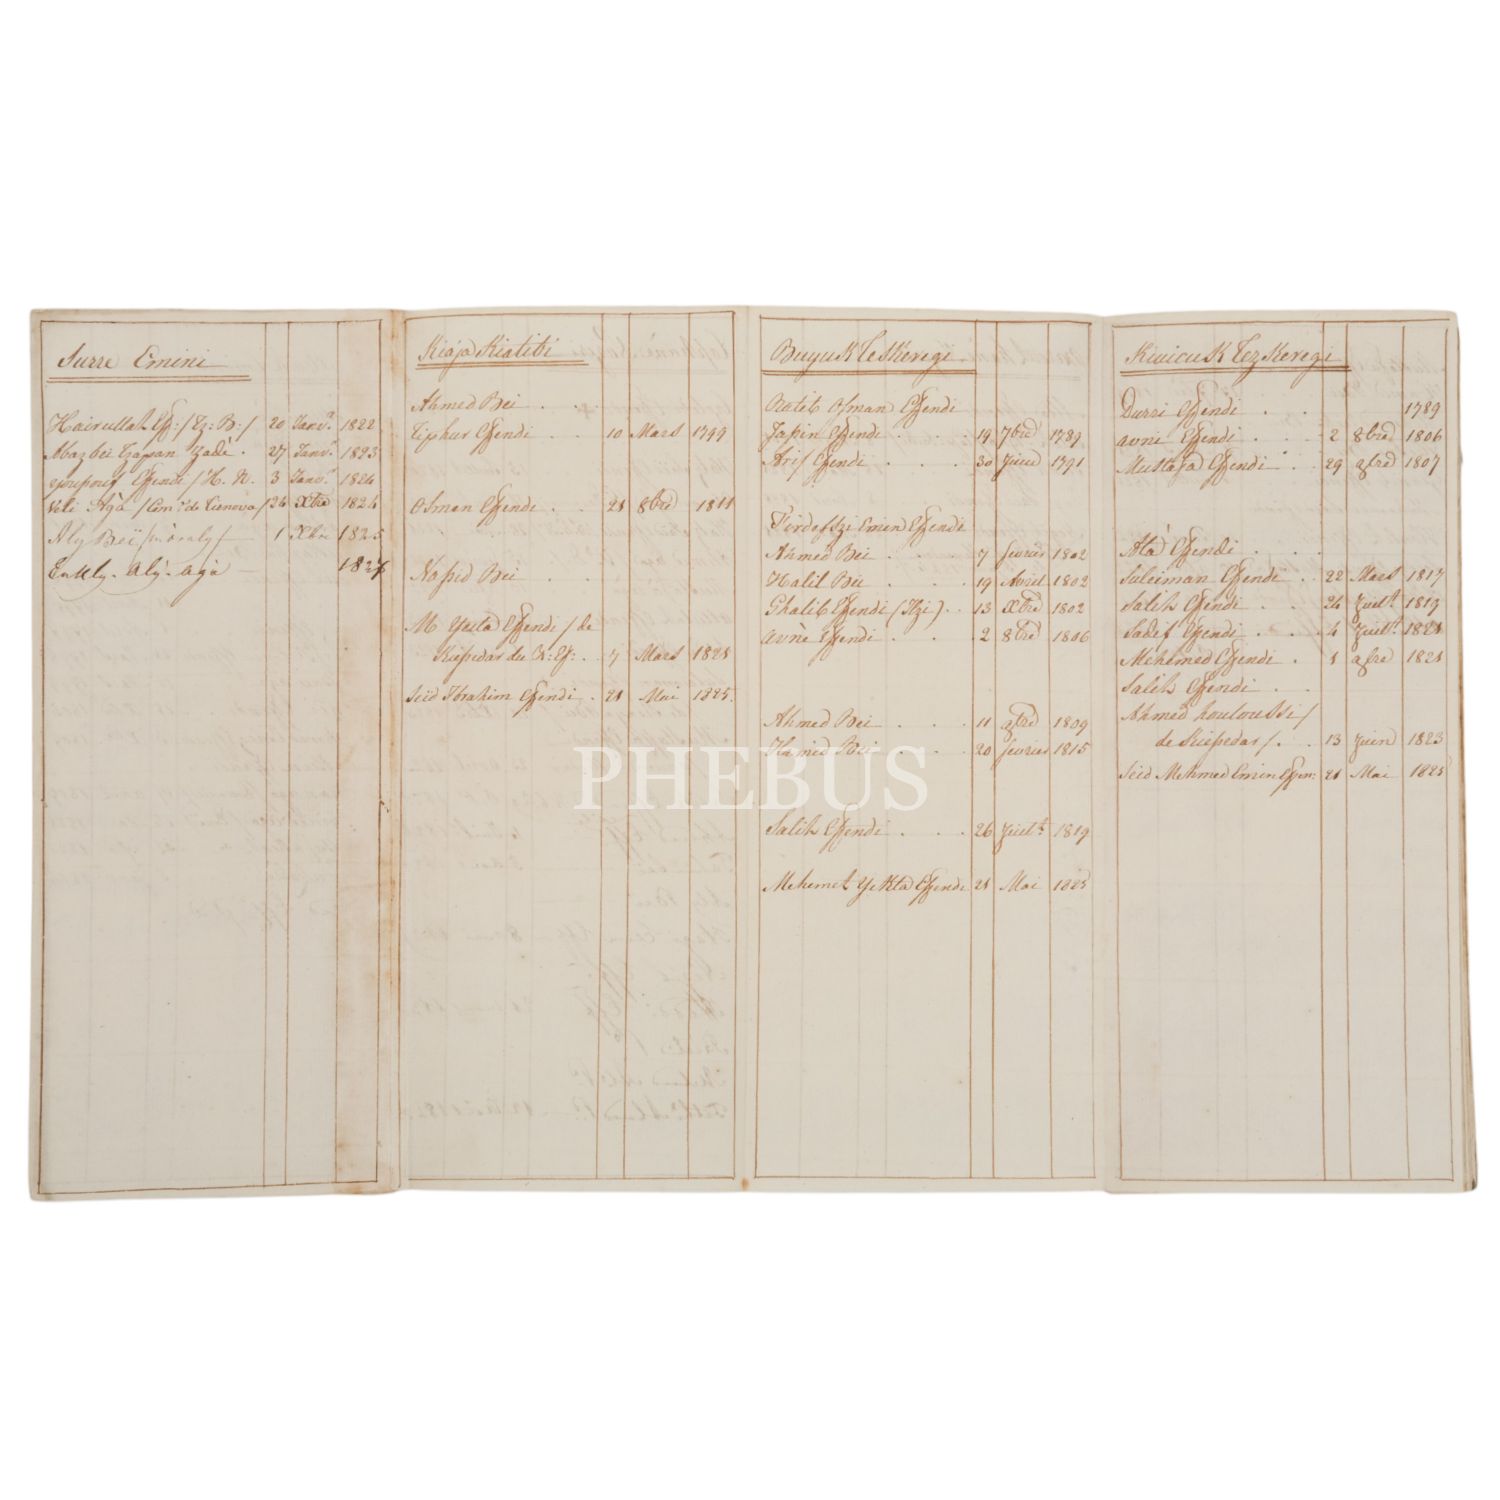 Surre Emini
Hairullah Eff: / Tz: B: / 20 Janv.r 1822
Abaz bei Tzapan Zadè . 27 Janv.r 1823
Effendi / H. N. 3 Janv.r 1824
Veli Agà / de Tienova / 24 Xbre 1824
Aly Beï 1 Xbre 1825
Aly. Aga — 1827
Kiaja Kiatibi
Ahmed Bei . . .
Effendi . . 10 Mars 1799
Osman Effendi . . 21 8bre 1811
Bei . .
M Yesta Effendi / de
Kiessedar du R: Ef: . 7 Mars 1821
Seïd Ibrahim Effendi . 21 Mai 1825.
Buyuk Teskeregi
Ratib Osman Effendi
Effendi . . . 19 7bre 1789
Arif Effendi . . . 30 Juin 1791
Emin Effendi
Ahmed Bei . . . 7 fevrier 1802
Halil Bei . . . 19 Avril 1802
Ghalib Effendi . . 13 Xbre 1802
avnè Effendi . . . 2 8bre 1806
Ahmed Bei . . . 11 9bre 1809
Hamid Bei . . . 20 fevrier 1815
PHEBUS
Salih Effendi . . . 26 Juilt. 1819
Mehemet Yekta Effendi 21 Mai 1825
Kiucuk Tezkeregi
Durri Effendi . . 1789
avni Effendi . . . 2 8bre 1806
Mustafa Effendi . . 29 9bre 1807
Atà Effendi . . .
Suleiman Effendi . . 22 Mars 1817
Salih Effendi . . . 24 Juilt. 1819
Sadif Effendi . . . 4 Juilt. 1821
Mehemed Effendi . 1 9bre 1821
Salih Effendi . .
Ahmed houloussi /
de Kiessedar / . . 13 Juin 1823
Seïd Mehmed Emin Effen: 21 Mai 1825